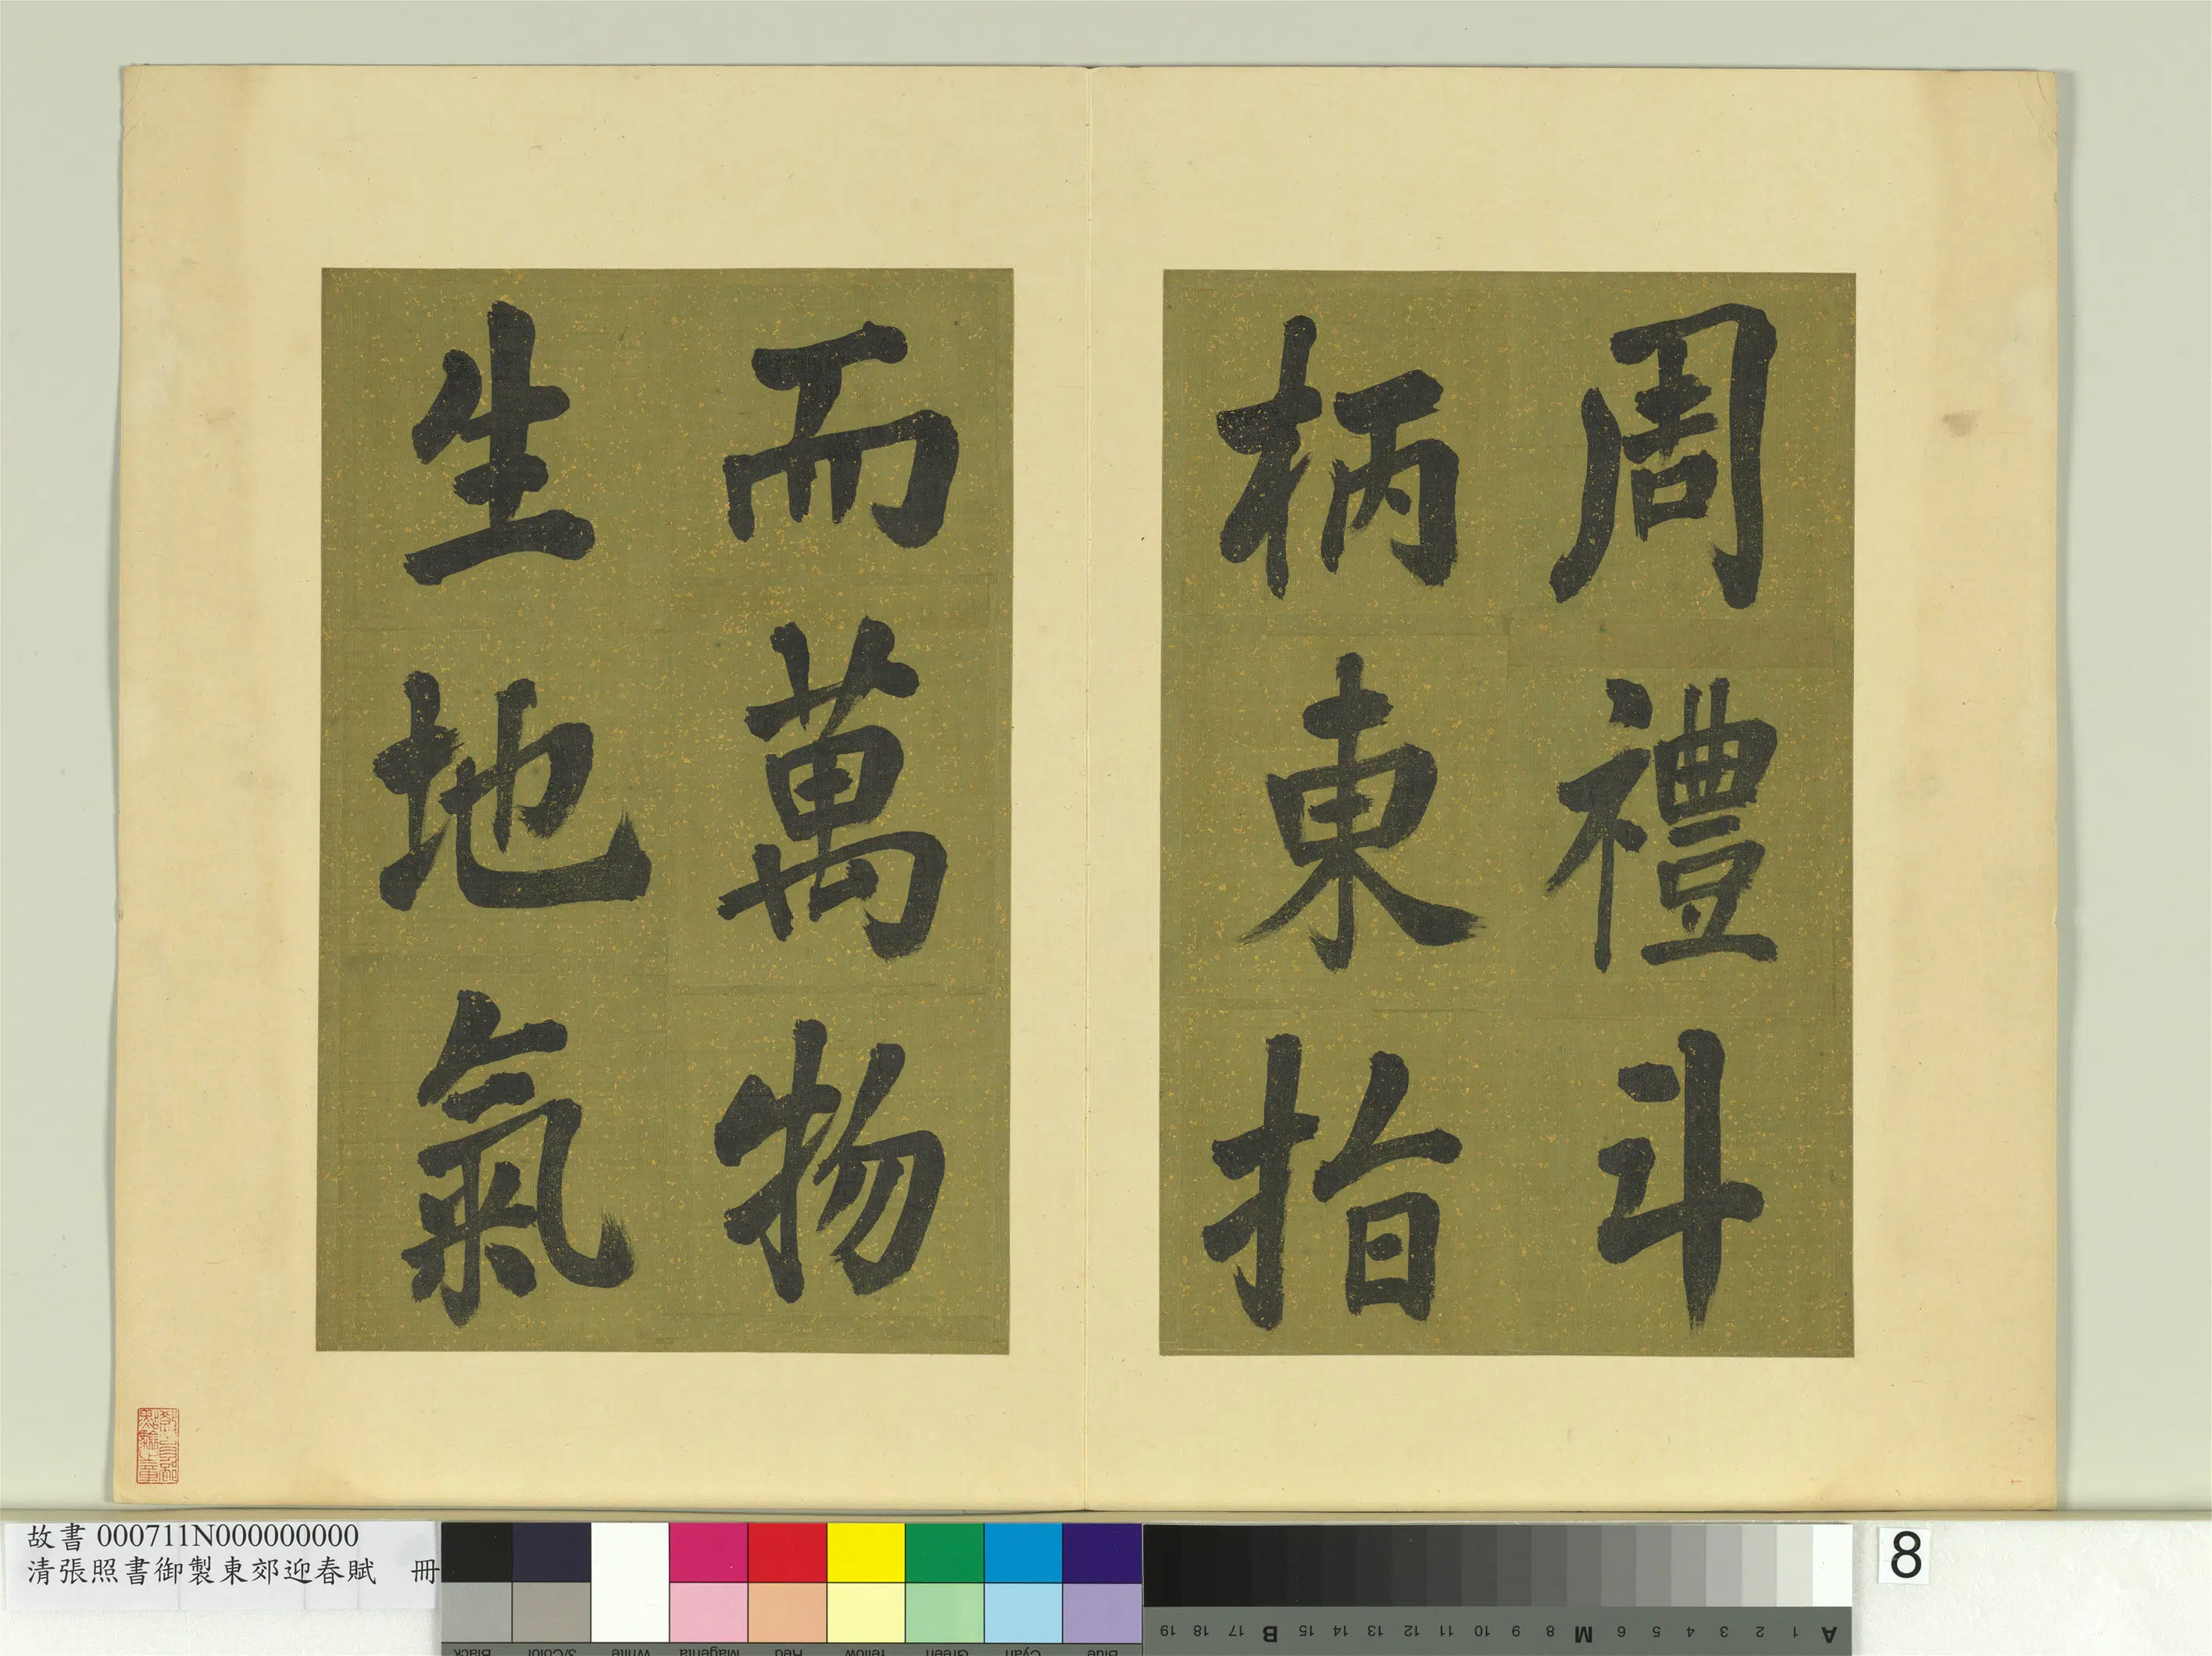 周禮斗
柄東指
而萬物
生地氣
故書 000711N000000000
清張照書御製東郊迎春賦 冊
8
Black 3/Color White Magenta Red Yellow Green Cyan Blue
19 18 17 B 15 14 13 12 11 10 9 8 M 6 5 4 3 2 1 A